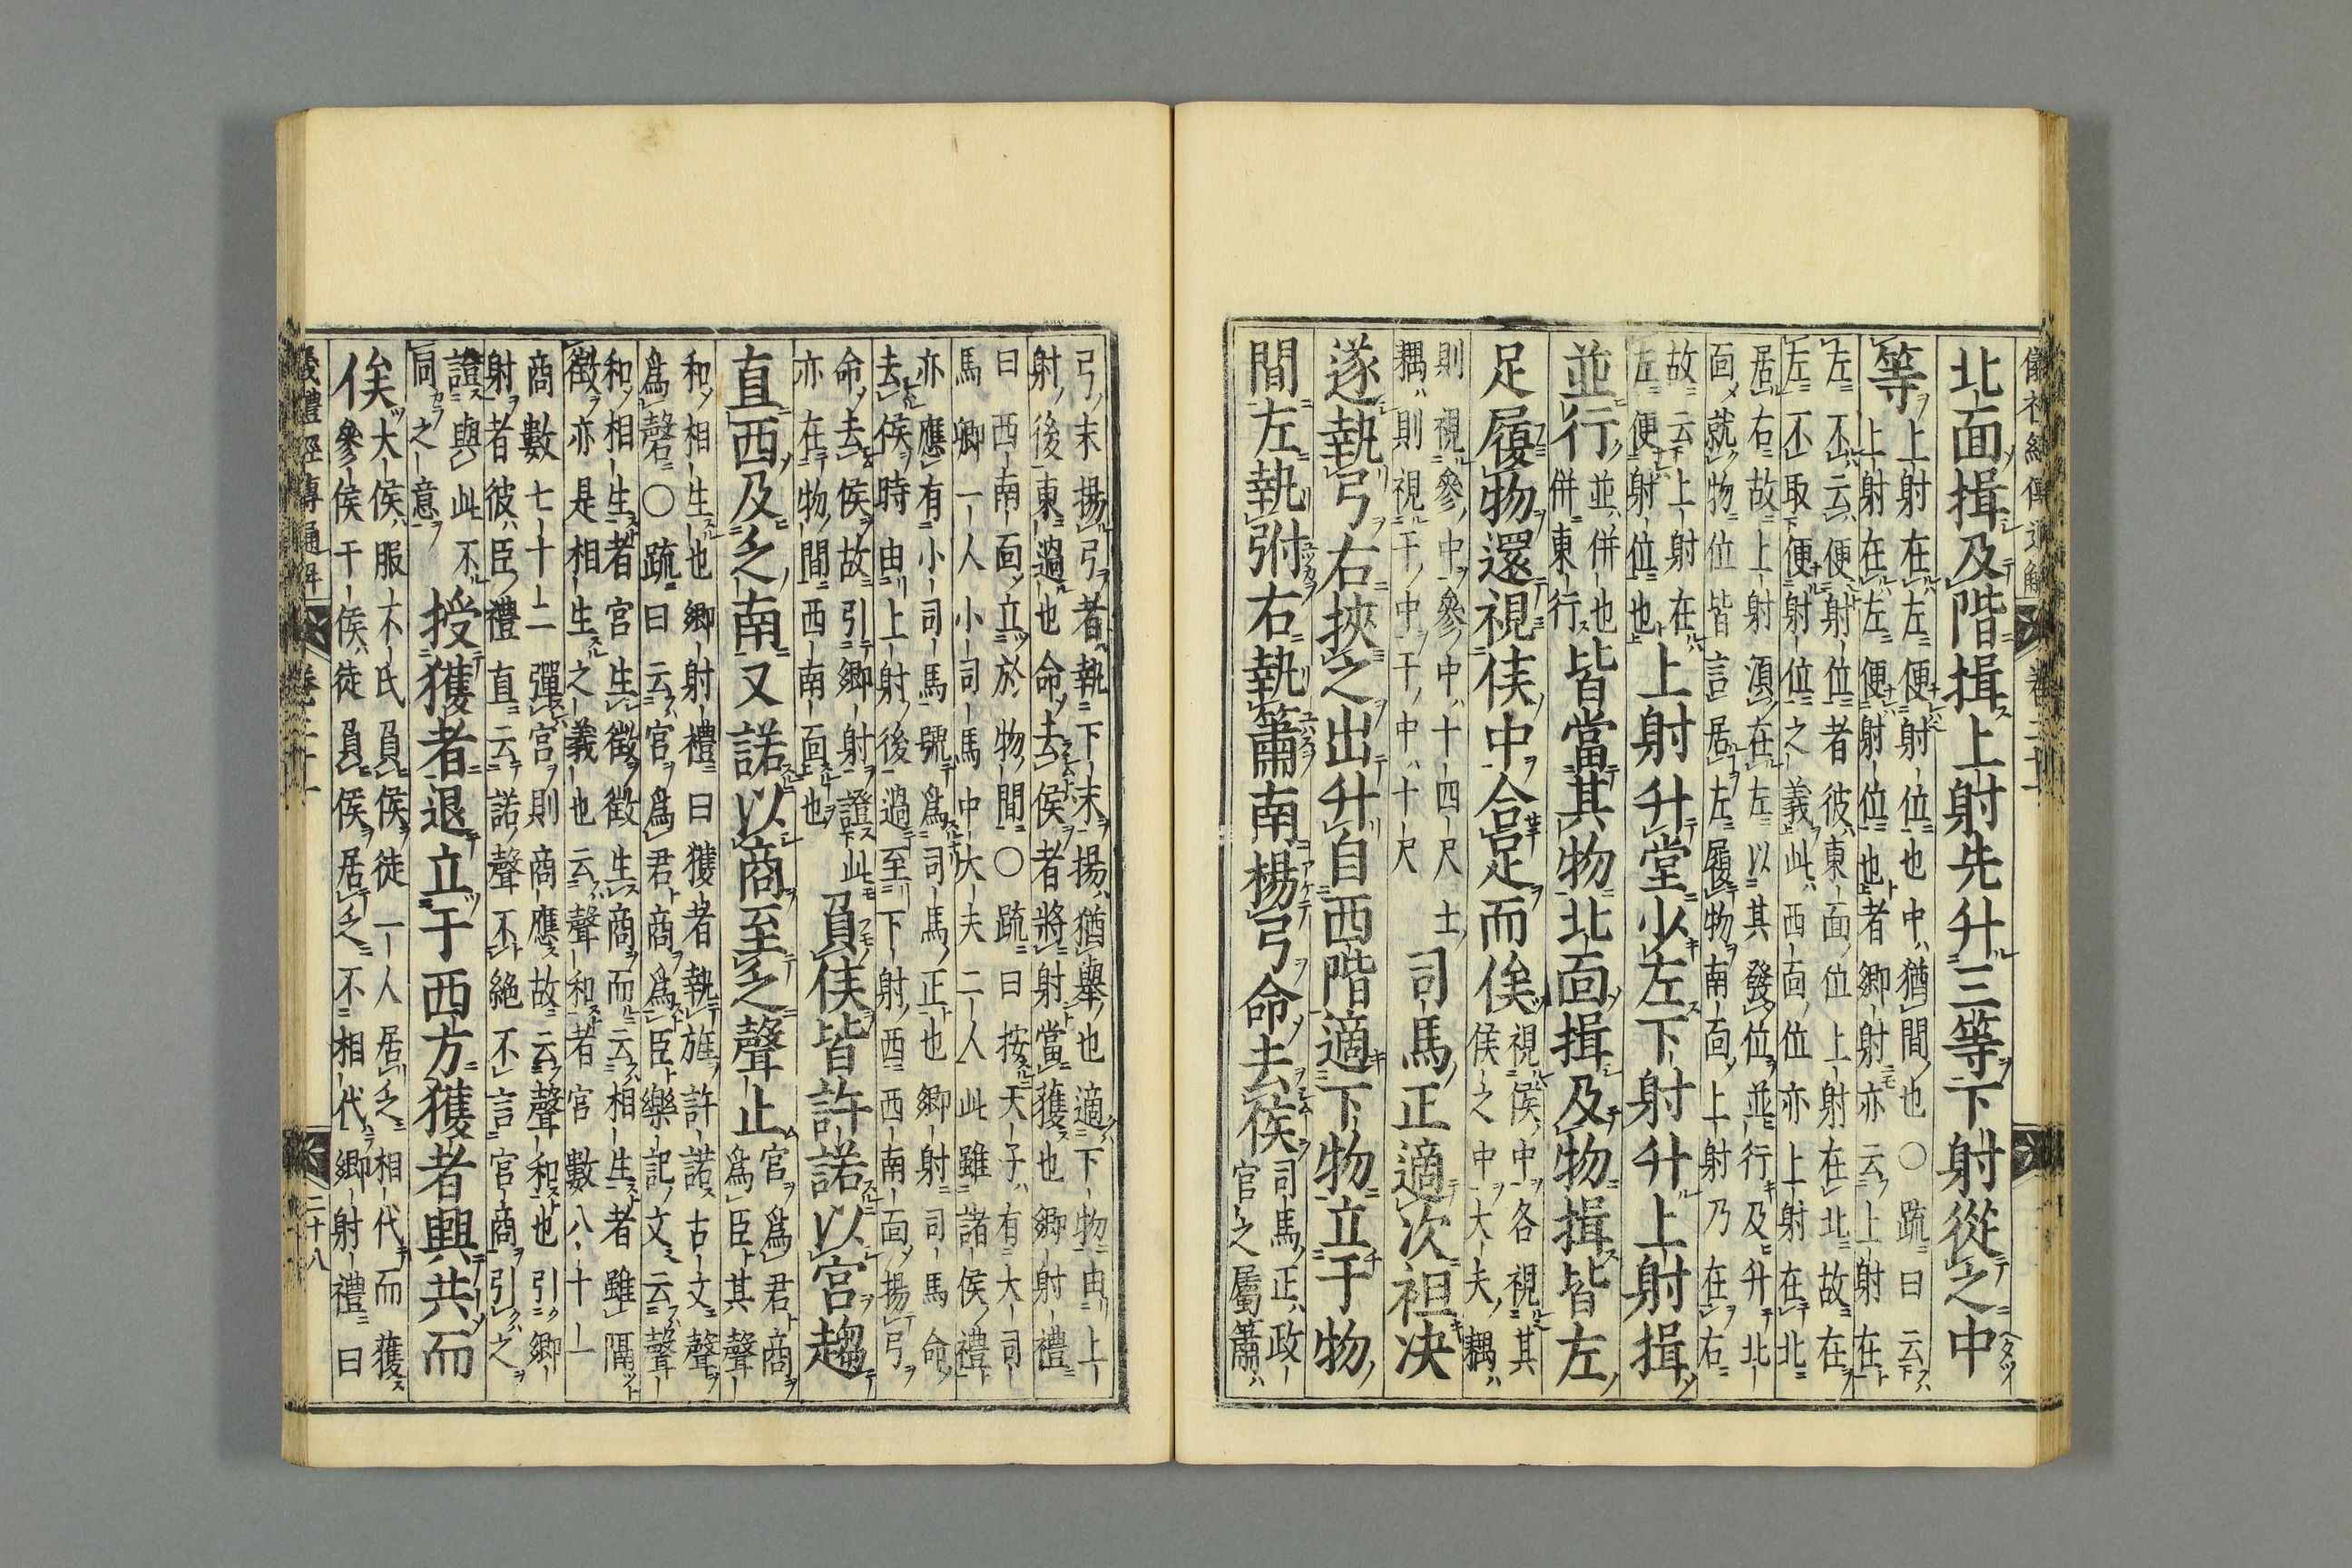 儀礼經傳通解 卷二十一
北面揖及階揖上射先升三等下射從之中
等
上射在左便射位也中猶間也〇疏曰云
上射在左便射位也者卿射亦云上射在
左不云便射位者彼東面位上射在北故在
左不取便射位之義此西面位亦上射在北
居右故上射須在左以其發位並行及升北
面就物位皆言居左履物南面上射乃在右
故云上射在
左便射位也
上射升堂少左下射升上射揖
並行
並併也
併東行
皆當其物北面揖及物揖皆左
足履物還視侯中合足而俟
視侯中各視其
侯之中大夫耦
則視參中參中十四尺士
耦則視干中干中十尺
司馬正適次袒決
遂執弓右挾之出升自西階適下物立于物
間左執弣右執簫南揚弓命去侯
司馬正政
官之屬簫
弓末揚弓者執下末揚猶舉也適下物由上
射後東過也命去侯者將射當獲也卿射禮
曰西南面立於物間〇疏曰按天子有大司
馬卿一人小司馬中大夫二人此雖諸侯禮
亦應有小司馬號爲司馬正也卿射司馬命
去侯時由上射後過至下射西西南面揚弓
命去侯故引卿射證此
亦在物間西南面也
負侯皆許諾以宮趨
直西及乏南又諾以商至乏聲止
官爲君商
爲臣其聲
和相生也卿射禮曰獲者執旌許諾古文聲
爲磬〇疏曰云官爲君商爲臣樂記文云聲
和相生者官生徵徵生商而云相生者雖隔
徵亦是相生之義也云聲和者官數八十一
商數七十二彈宮則商應故云聲和也引卿
射者彼臣禮直云諾聲不絶不言官商引之
證與此不
同之意
授獲者退立于西方獲者興共而
俟
大侯服不氏負侯徒一人居乏相代而獲
參侯干侯徒負侯居乏不相代卿射禮曰
儀禮經傳通解 卷二十一 二十八